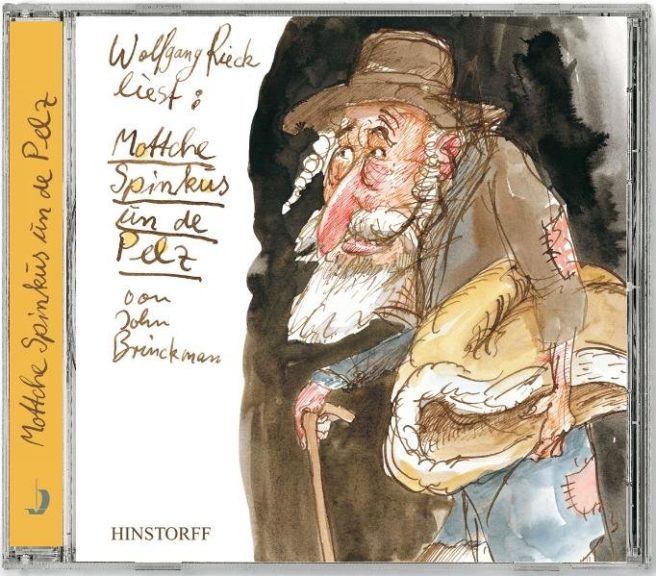 Mottche Spinkus ün de Pelz
Wolfgang Rieck
liest:
Mottche
Spinkus
ün de
Pelz
von
John
Brinckman
HINSTORFF